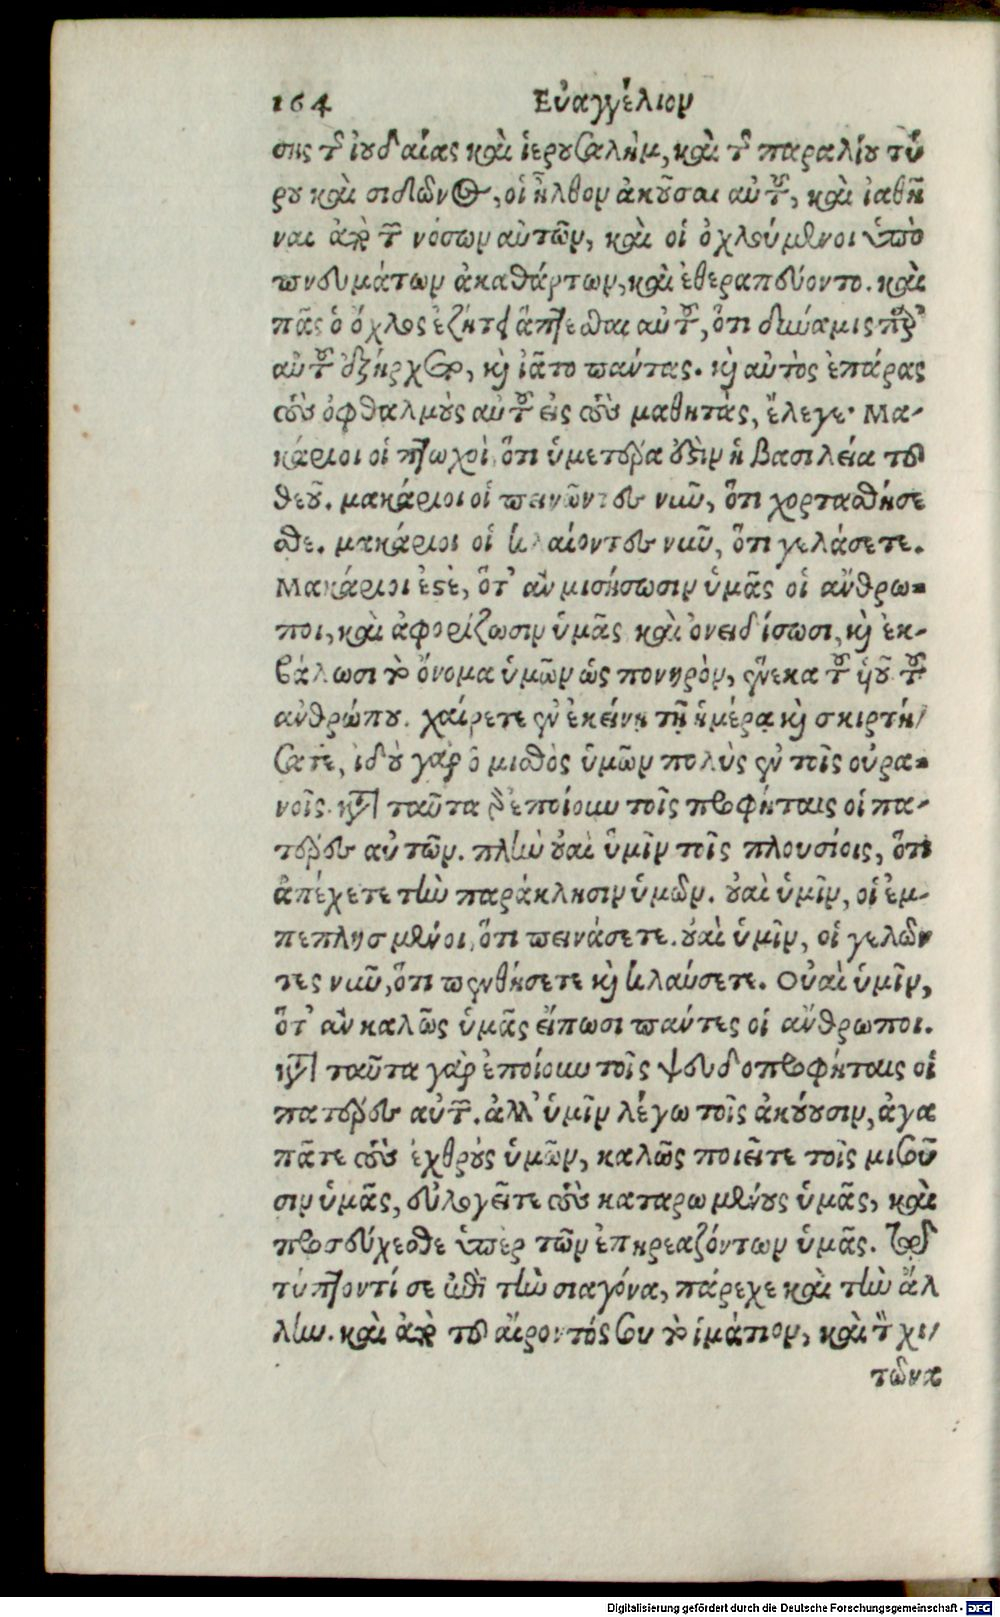 164 Εὐαγγέλιον
σης τῆς ἰουδαίας καὶ ἱερουσαλὴμ, καὶ τῆς παραλίου τύ
ρου καὶ σιδῶνος, οἳ ἦλθον ἀκοῦσαι αὐτοῦ, καὶ ἰαθῆ
ναι ἀπὸ τῶν νόσων αὐτῶν, καὶ οἱ ὀχλούμενοι ὑπὸ
πνευμάτων ἀκαθάρτων, καὶ ἐθεραπεύοντο. καὶ
πᾶς ὁ ὄχλος ἐζήτει ἅπτεσθαι αὐτοῦ, ὅτι δύναμις παρ'
αὐτοῦ ἐξήρχετο, καὶ ἰᾶτο πάντας. καὶ αὐτὸς ἐπάρας
τοὺς ὀφθαλμοὺς αὐτοῦ εἰς τοὺς μαθητὰς, ἔλεγε· Μα-
κάριοι οἱ πτωχοὶ, ὅτι ὑμετέρα ἐστὶν ἡ βασιλεία τοῦ
θεοῦ. μακάριοι οἱ πεινῶντες νῦν, ὅτι χορτασθήσε
σθε. μακάριοι οἱ κλαίοντες νῦν, ὅτι γελάσετε.
Μακάριοι ἐστὲ, ὅταν μισήσωσιν ὑμᾶς οἱ ἄνθρω-
ποι, καὶ ἀφορίζωσιν ὑμᾶς καὶ ὀνειδίσωσι, καὶ ἐκ-
βάλωσι τὸ ὄνομα ὑμῶν ὡς πονηρὸν, ἕνεκα τοῦ υἱοῦ τοῦ
ανθρώπου. χαίρετε ἐν ἐκείνῃ τῇ ἡμέρᾳ καὶ σκιρτή/
σατε, ἰδοὺ γὰρ ὁ μισθὸς ὑμῶν πολὺς ἐν τοῖς οὐρα-
νοῖς. κατὰ ταῦτα δὲ ἐποίουν τοῖς προφήταις οἱ πα-
τέρες αὐτῶν. πλὴν οὐαὶ ὑμῖν τοῖς πλουσίοις, ὅτι
ἀπέχετε τὴν παράκλησιν ὑμῶν. οὐαὶ ὑμῖν, οἱ ἐμ-
πεπλησμένοι, ὅτι πεινάσετε. οὐαὶ ὑμῖν, οἱ γελῶν
τες νῦν, ὅτι πενθήσετε καὶ κλαύσετε. Οὐαὶ ὑμῖν,
ὅταν καλῶς ὑμᾶς εἴπωσι πάντες οἱ ἄνθρωποι.
κατὰ ταῦτα γὰρ ἐποίουν τοῖς ψευδοπροφήταις οἱ
πατέρες αὐτῶν. ἀλλ' ὑμῖν λέγω τοῖς ἀκούουσιν, ἀγα
πᾶτε τοὺς ἐχθροὺς ὑμῶν, καλῶς ποιεῖτε τοῖς μισοῦ
σιν ὑμᾶς, εὐλογεῖτε τοὺς καταρωμένους ὑμᾶς, καὶ
προσεύχεσθε ὑπὲρ τῶν ἐπηρεαζόντων ὑμᾶς. τῷ
τύπτοντί σε ἐπὶ τὴν σιαγόνα, πάρεχε καὶ τὴν ἄλ
λην. καὶ ἀπὸ τοῦ αἴροντός σου τὸ ἱμάτιον, καὶ τὸν χι/
τῶνα
Digitalisierung gefördert durch die Deutsche Forschungsgemeinschaft - DFG